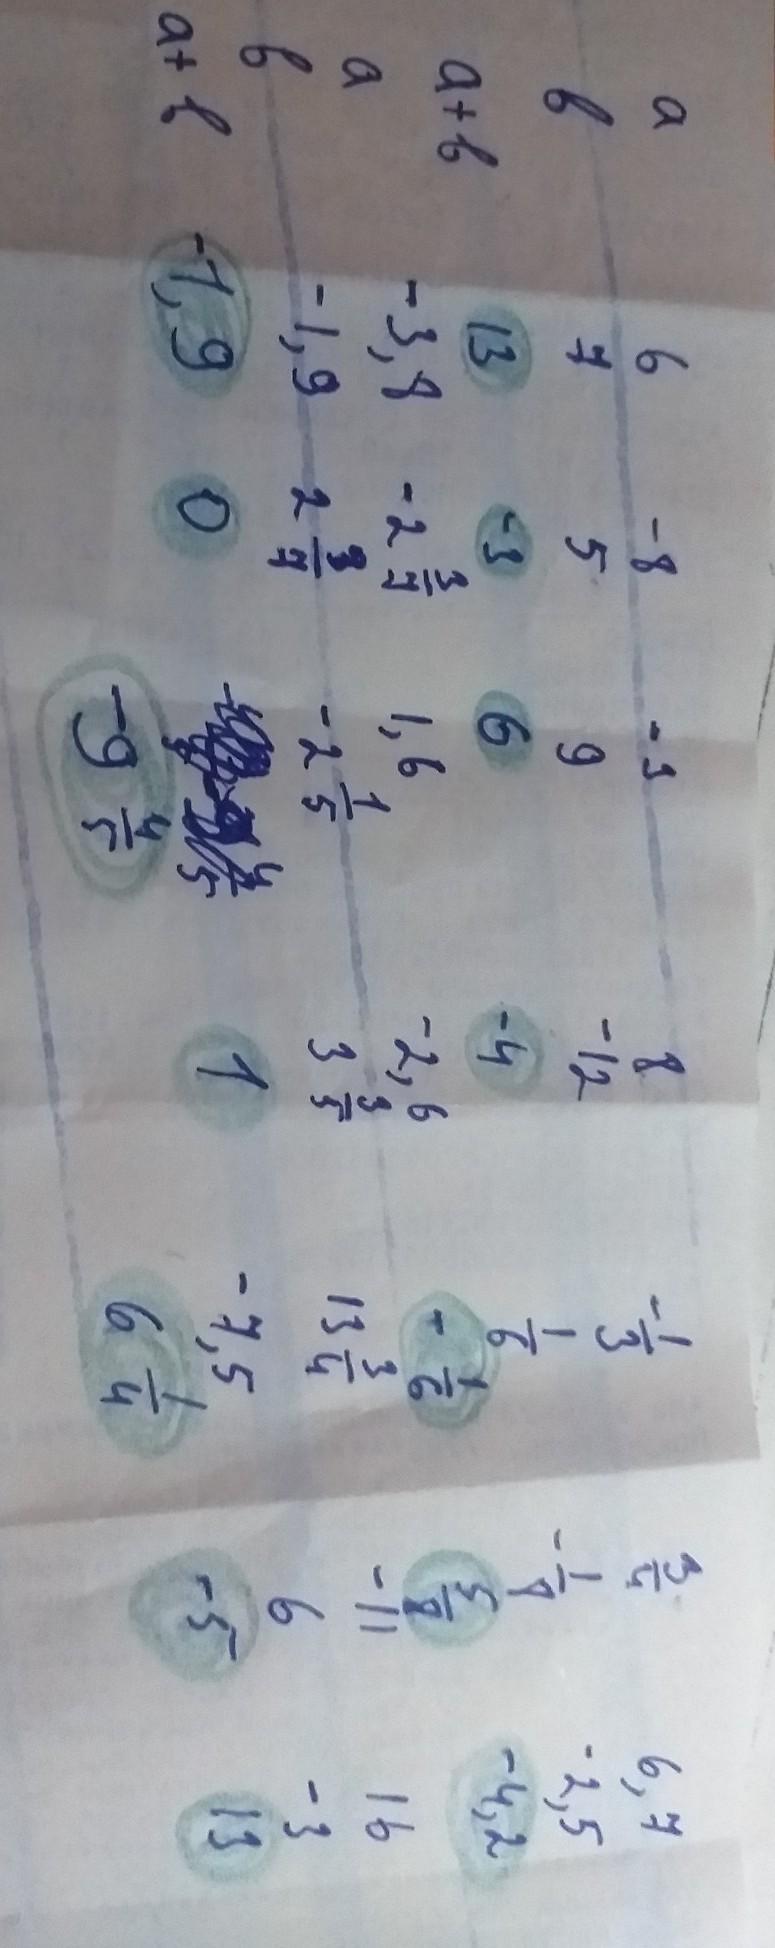 a 6 -8 -3 8 -1/3 3/4 6,7
b 7 5 9 -12 1/6 -1/8 -2,5
a+b 13 -3 6 -4 -1/6 5/8 -4,2
a -3,8 -2 3/7 1,6 -2,6 13 3/4 -11 16
b -1,9 2 3/7 -2 1/5 3 3/5 -7,5 6 -3
a+b -1,9 0 -9 4/5 1 6 1/4 -5 13